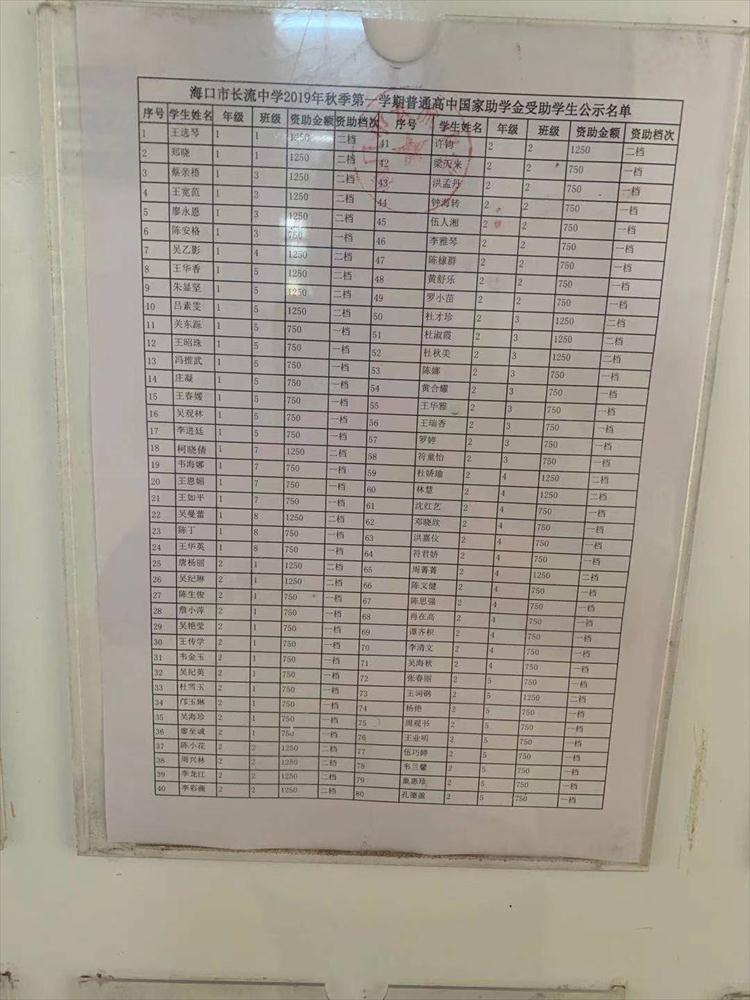 海口市长流中学2019年秋季第一学期普通高中国家助学金受助学生公示名单
序号 学生姓名 年级 班级 资助金额 资助档次 序号 学生姓名 年级 班级 资助金额 资助档次
1 王选琴 1 1 1250 二档 41 许钧 2 2 1250 二档
2 郑晓 1 1 1250 二档 42 梁天来 2 2 750 一档
3 蔡亲梧 1 3 1250 二档 43 洪孟丹 2 2 750 一档
4 王宽范 1 3 1250 二档 44 钟海转 2 2 750 一档
5 廖永恩 1 3 1250 二档 45 伍人湘 2 2 750 一档
6 陈安格 1 3 750 一档 46 李雅琴 2 2 750 一档
7 吴乙影 1 4 1250 二档 47 陈棣群 2 2 750 一档
8 王华香 1 5 1250 二档 48 黄舒乐 2 2 750 一档
9 朱显坚 1 5 1250 二档 49 罗小苗 2 2 750 一档
10 吕素雯 1 5 1250 二档 50 杜才珍 2 3 1250 二档
11 关东源 1 5 750 一档 51 杜淑霞 2 3 1250 二档
12 王昭珠 1 5 750 一档 52 杜秋美 2 3 1250 二档
13 冯推武 1 5 750 一档 53 陈娜 2 3 750 一档
14 庄凝 1 5 750 一档 54 黄合耀 2 3 750 一档
15 王春媛 1 5 750 一档 55 王华雅 2 3 750 一档
16 吴观林 1 5 750 一档 56 王瑞香 2 3 750 一档
17 李进廷 1 5 750 一档 57 罗婷 2 3 750 一档
18 柯晓倩 1 7 1250 二档 58 符童怡 2 3 750 一档
19 韦海娜 1 7 750 一档 59 杜娇瑜 2 4 1250 二档
20 王恩媚 1 7 750 一档 60 林慧 2 4 1250 二档
21 王如平 1 7 750 一档 61 沈红艺 2 4 750 一档
22 吴曼蕾 1 8 1250 二档 62 邓晓欣 2 4 750 一档
23 陈丁 1 8 750 一档 63 洪嘉仪 2 4 750 一档
24 王华英 1 8 750 一档 64 符君娇 2 4 750 一档
25 唐杨丽 2 1 1250 二档 65 周菁菁 2 4 1250 二档
26 吴纪琳 2 1 1250 二档 66 陈文健 2 4 750 一档
27 陈生俊 2 1 750 一档 67 陈思强 2 4 750 一档
28 詹小萍 2 1 750 一档 68 冉在高 2 4 750 一档
29 吴艳莹 2 1 750 一档 69 谭齐枳 2 4 750 一档
30 王传学 2 1 750 一档 70 李清文 2 4 750 一档
31 韦金玉 2 1 750 一档 71 吴海秋 2 4 750 一档
32 吴纪英 2 1 750 一档 72 张春丽 2 5 750 一档
33 杜雪玉 2 1 750 一档 73 王词钢 2 5 1250 二档
34 邝玉琳 2 1 750 一档 74 杨艳 2 5 750 一档
35 吴海珍 2 1 750 一档 75 周观书 2 5 750 一档
36 廖至诚 2 1 750 一档 76 王业明 2 5 750 一档
37 陈小花 2 2 1250 二档 77 伍巧婷 2 5 750 一档
38 周兴林 2 2 1250 二档 78 韦兰馨 2 5 750 一档
39 李龙江 2 2 1250 二档 79 惠珍 2 5 750 一档
40 李彩薇 2 2 1250 二档 80 孔德盈 2 5 750 一档